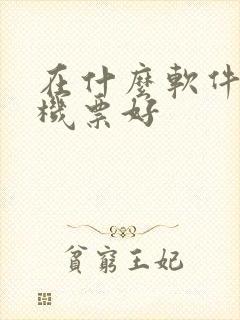 在什麼軟件
機票好
貧窮王妃